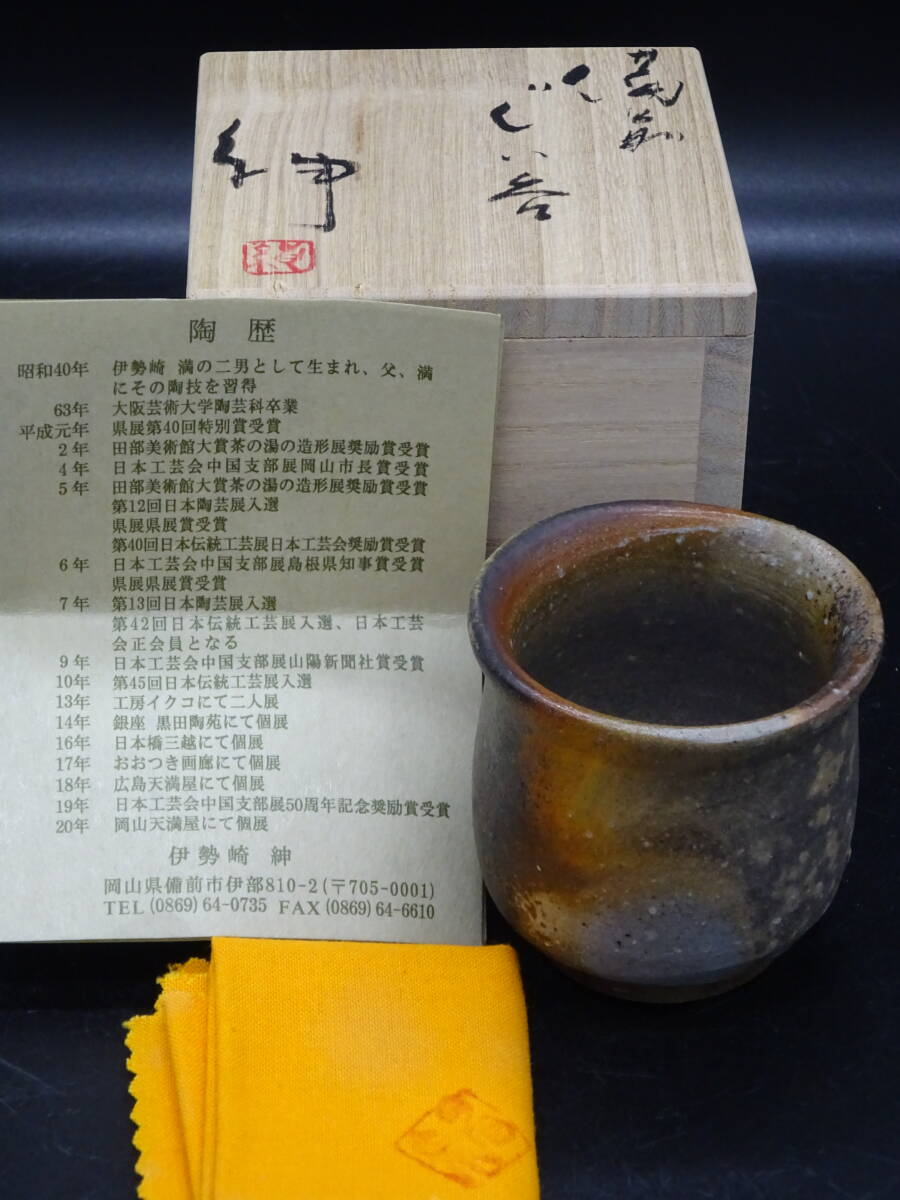 備前
ぐい呑
紳
陶歴
昭和40年 伊勢崎 満の二男として生まれ、父、満
にその陶技を習得
63年 大阪芸術大学陶芸科卒業
平成元年 県展第40回特別賞受賞
2年 田部美術館大賞茶の湯の造形展奨励賞受賞
4年 日本工芸会中国支部展岡山市長賞受賞
5年 田部美術館大賞茶の湯の造形展奨励賞受賞
第12回日本陶芸展入選
県展県展賞受賞
第40回日本伝統工芸展日本工芸会奨励賞受賞
6年 日本工芸会中国支部展島根県知事賞受賞
県展県展賞受賞
7年 第13回日本陶芸展入選
第42回日本伝統工芸展入選、日本工芸
会正会員となる
9年 日本工芸会中国支部展山陽新聞社賞受賞
10年 第45回日本伝統工芸展入選
13年 工房イクコにて二人展
14年 銀座 黒田陶苑にて個展
16年 日本橋三越にて個展
17年 おおつき画廊にて個展
18年 広島天満屋にて個展
19年 日本工芸会中国支部展50周年記念奨励賞受賞
20年 岡山天満屋にて個展
伊勢崎 紳
岡山県備前市伊部810-2(〒705-0001)
TEL (0869) 64-0735 FAX (0869) 64-6610